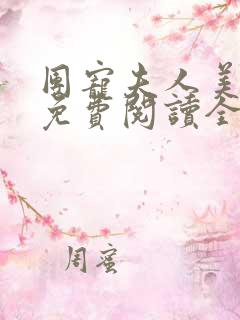 團寵夫人美
免費閱讀全
周蜜